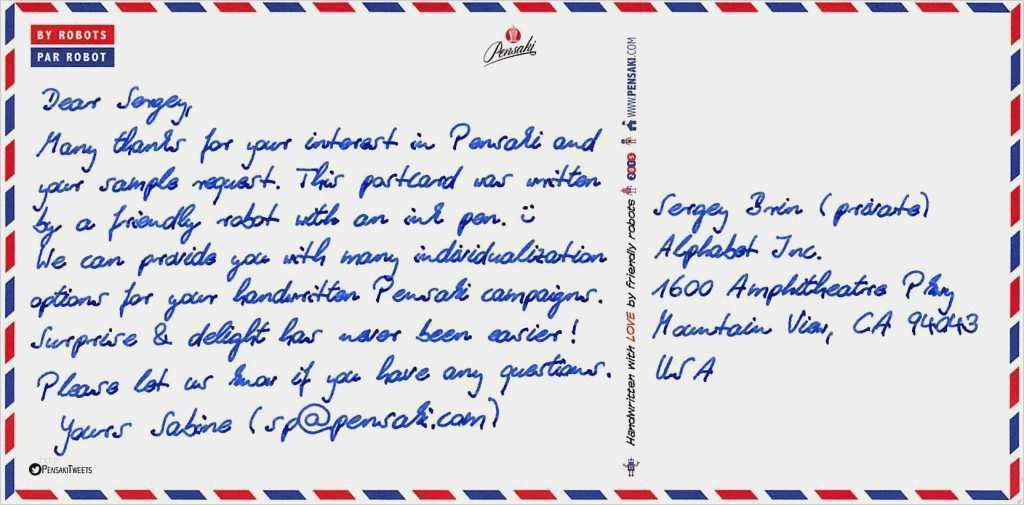 BY ROBOTS
PAR ROBOT
Pensaki
Dear Sergey,
Many thanks for your interest in Pensaki and
your sample request. This postcard was written
by a friendly robot with an ink pen. :)
We can provide you with many individualization
options for your handwritten Pensaki campaigns.
Surprise & delight has never been easier!
Please let us know if you have any questions.
Yours Sabine (sp@pensaki.com)
PENSAKITWEETS
Handwritten with LOVE by friendly robots
WWW.PENSAKI.COM
Sergey Brin (private)
Alphabet Inc.
1600 Amphitheatre Pkwy
Mountain View, CA 94043
USA